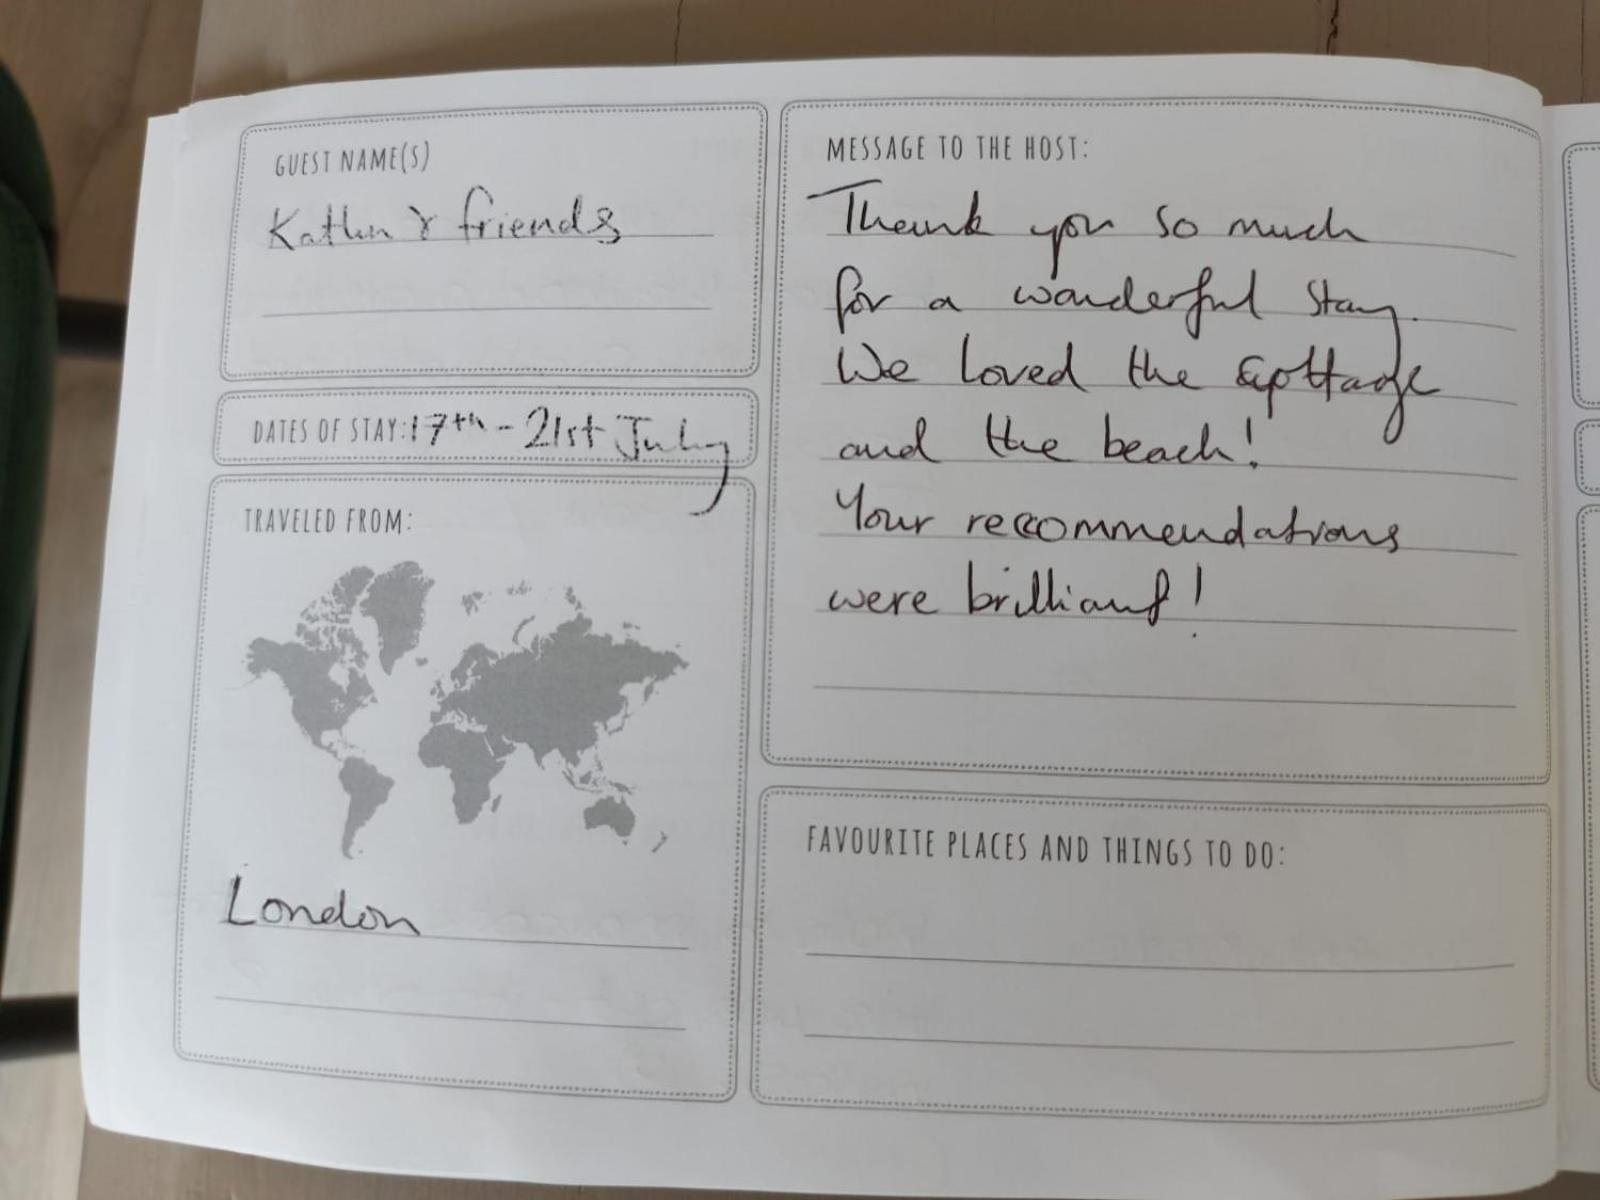 GUEST NAME(S)
& friends
DATES OF STAY: 17th - 21st July
TRAVELED FROM:
London
MESSAGE TO THE HOST:
Thank you so much
for a wonderful stay.
We loved the cottage
and the beach!
Your recommendations
were brilliant!
FAVOURITE PLACES AND THINGS TO DO: